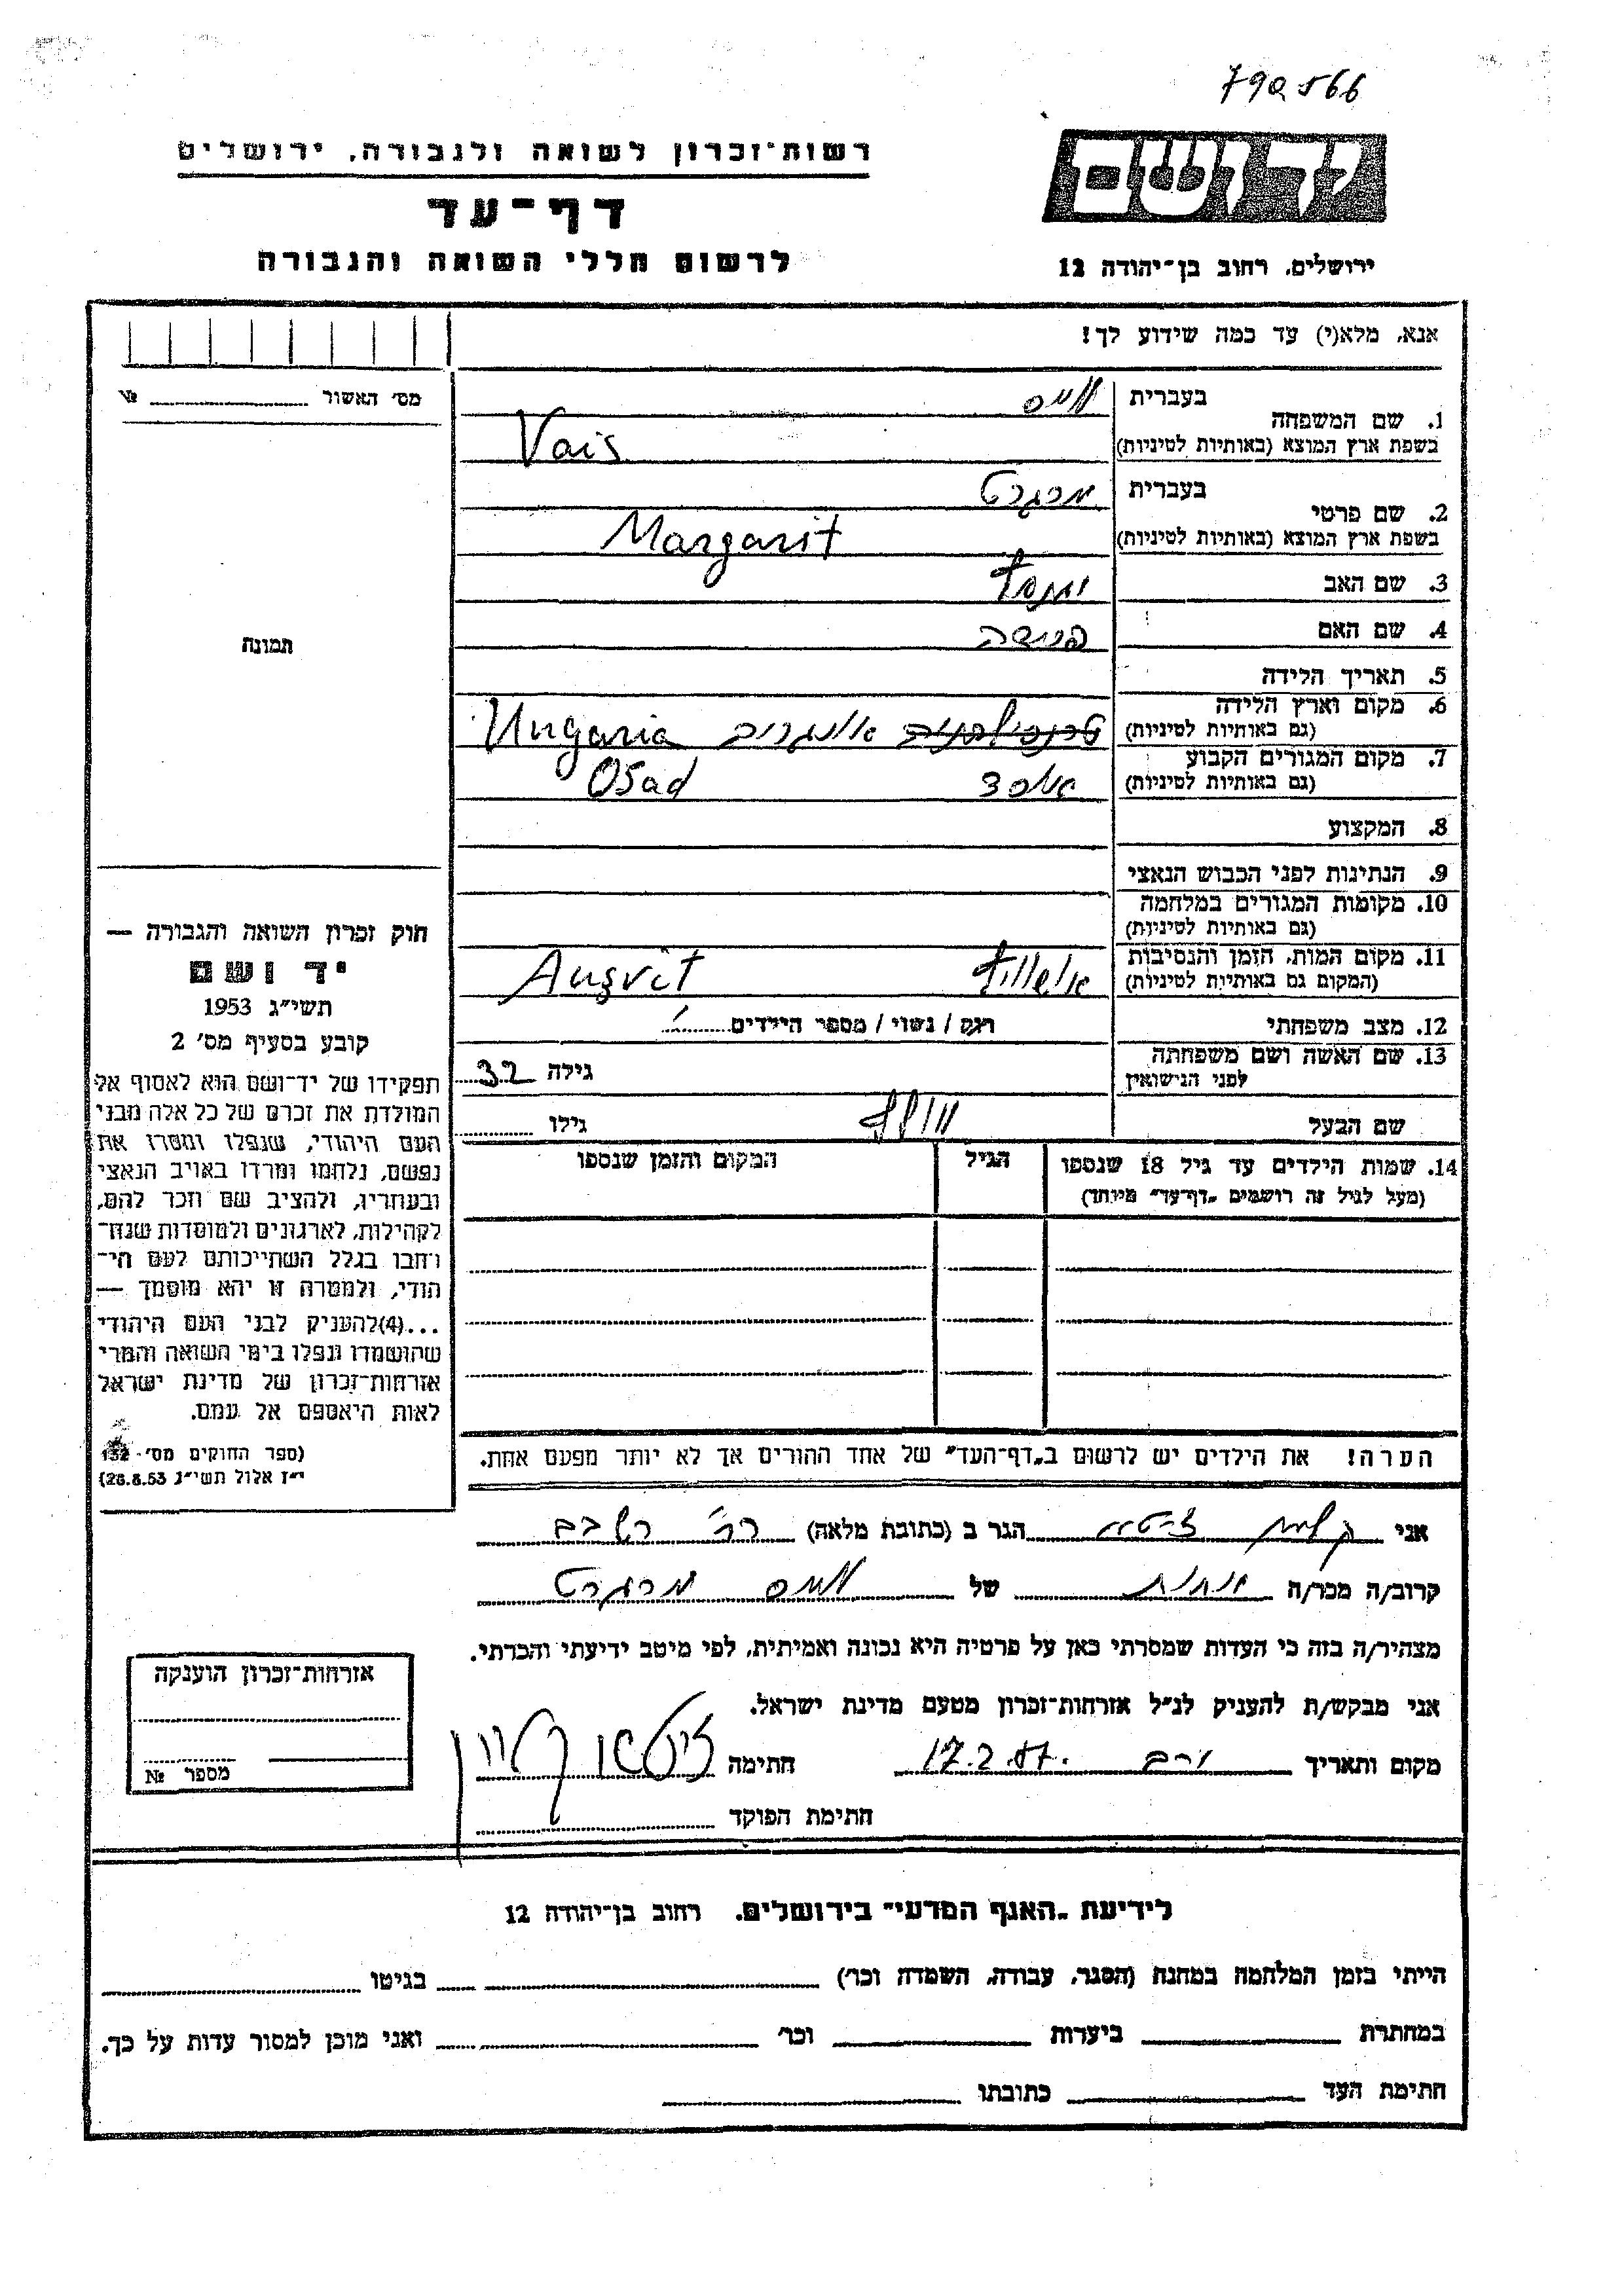 790566
רשות-זכרון לשואה ולגבורה, ירושלים
דף-עד
לרשום חללי השואה והגבורה
יד ושם
ירושלים, רחוב בן-יהודה 12
אנא, מלא(י) עד כמה שידוע לך!
מס' האשור №
תמונה
1. שם המשפחה
בעברית וייס
בשפת ארץ המוצא (באותיות לטיניות) Vais
2. שם פרטי
בעברית מרגרט
בשפת ארץ המוצא (באותיות לטיניות) Margarit
3. שם האב
4. שם האם
5. תאריך הלידה
6. מקום וארץ הלידה
(גם באותיות לטיניות) אונגריה Ungaria
7. מקום המגורים הקבוע
(גם באותיות לטיניות) Osad
8. המקצוע
9. הנתינות לפני הכבוש הנאצי
10. מקומות המגורים במלחמה
(גם באותיות לטיניות)
11. מקום המות, הזמן והנסיבות
(המקום גם באותיות לטיניות) אושוויץ Auşvit
12. מצב משפחתי רוק / נשוי / מספר הילדים
13. שם האשה ושם משפחתה
לפני הנישואין גילה 32
שם הבעל גילו
14. שמות הילדים עד גיל 18 שנספו הגיל המקום והזמן שנספו
(מעל לגיל זה רושמים "דף-עד" מיוחד)
הערה! את הילדים יש לרשום ב"דף-העד" של אחד ההורים אך לא יותר מפעם אחת.
חוק זכרון השואה והגבורה —
יד ושם
תשי"ג 1953
קובע בסעיף מס' 2
תפקידו של יד-ושם הוא לאסוף אל
המולדת את זכרם של כל אלה מבני
העם היהודי, שנפלו ומסרו את
נפשם, נלחמו ומרדו באויב הנאצי
ובעוזריו, ולהציב שם וזכר להם,
לקהילות, לארגונים ולמוסדות שנח-
רבו בגלל השתייכותם לעם הי-
הודי, ולמטרה זו יהא מוסמך —
...(4) להעניק לבני העם היהודי
שהושמדו ונפלו בימי השואה והמרי
אזרחות-זכרון של מדינת ישראל
לאות היאספם אל עמם.
(ספר החוקים מס' 132
י"ז אלול תשי"ג 28.8.53)
אני הגר ב (כתובת מלאה)
קרוב/ה מכר/ה של וייס מרגרט
מצהיר/ה בזה כי העדות שמסרתי כאן על פרטיה היא נכונה ואמיתית, לפי מיטב ידיעתי והכרתי.
אני מבקש/ת להעניק לנ"ל אזרחות-זכרון מטעם מדינת ישראל.
מקום ותאריך 17.2.87 חתימה
חתימת הפוקד
אזרחות-זכרון הוענקה
מספר №
לידיעת "האגף המדעי" בירושלים, רחוב בן-יהודה 12
הייתי בזמן המלחמה במחנה (הסגר, עבודה, השמדה וכו') בגיטו
במחתרת ביערות וכו' ואני מוכן למסור עדות על כך.
חתימת העד כתובתו